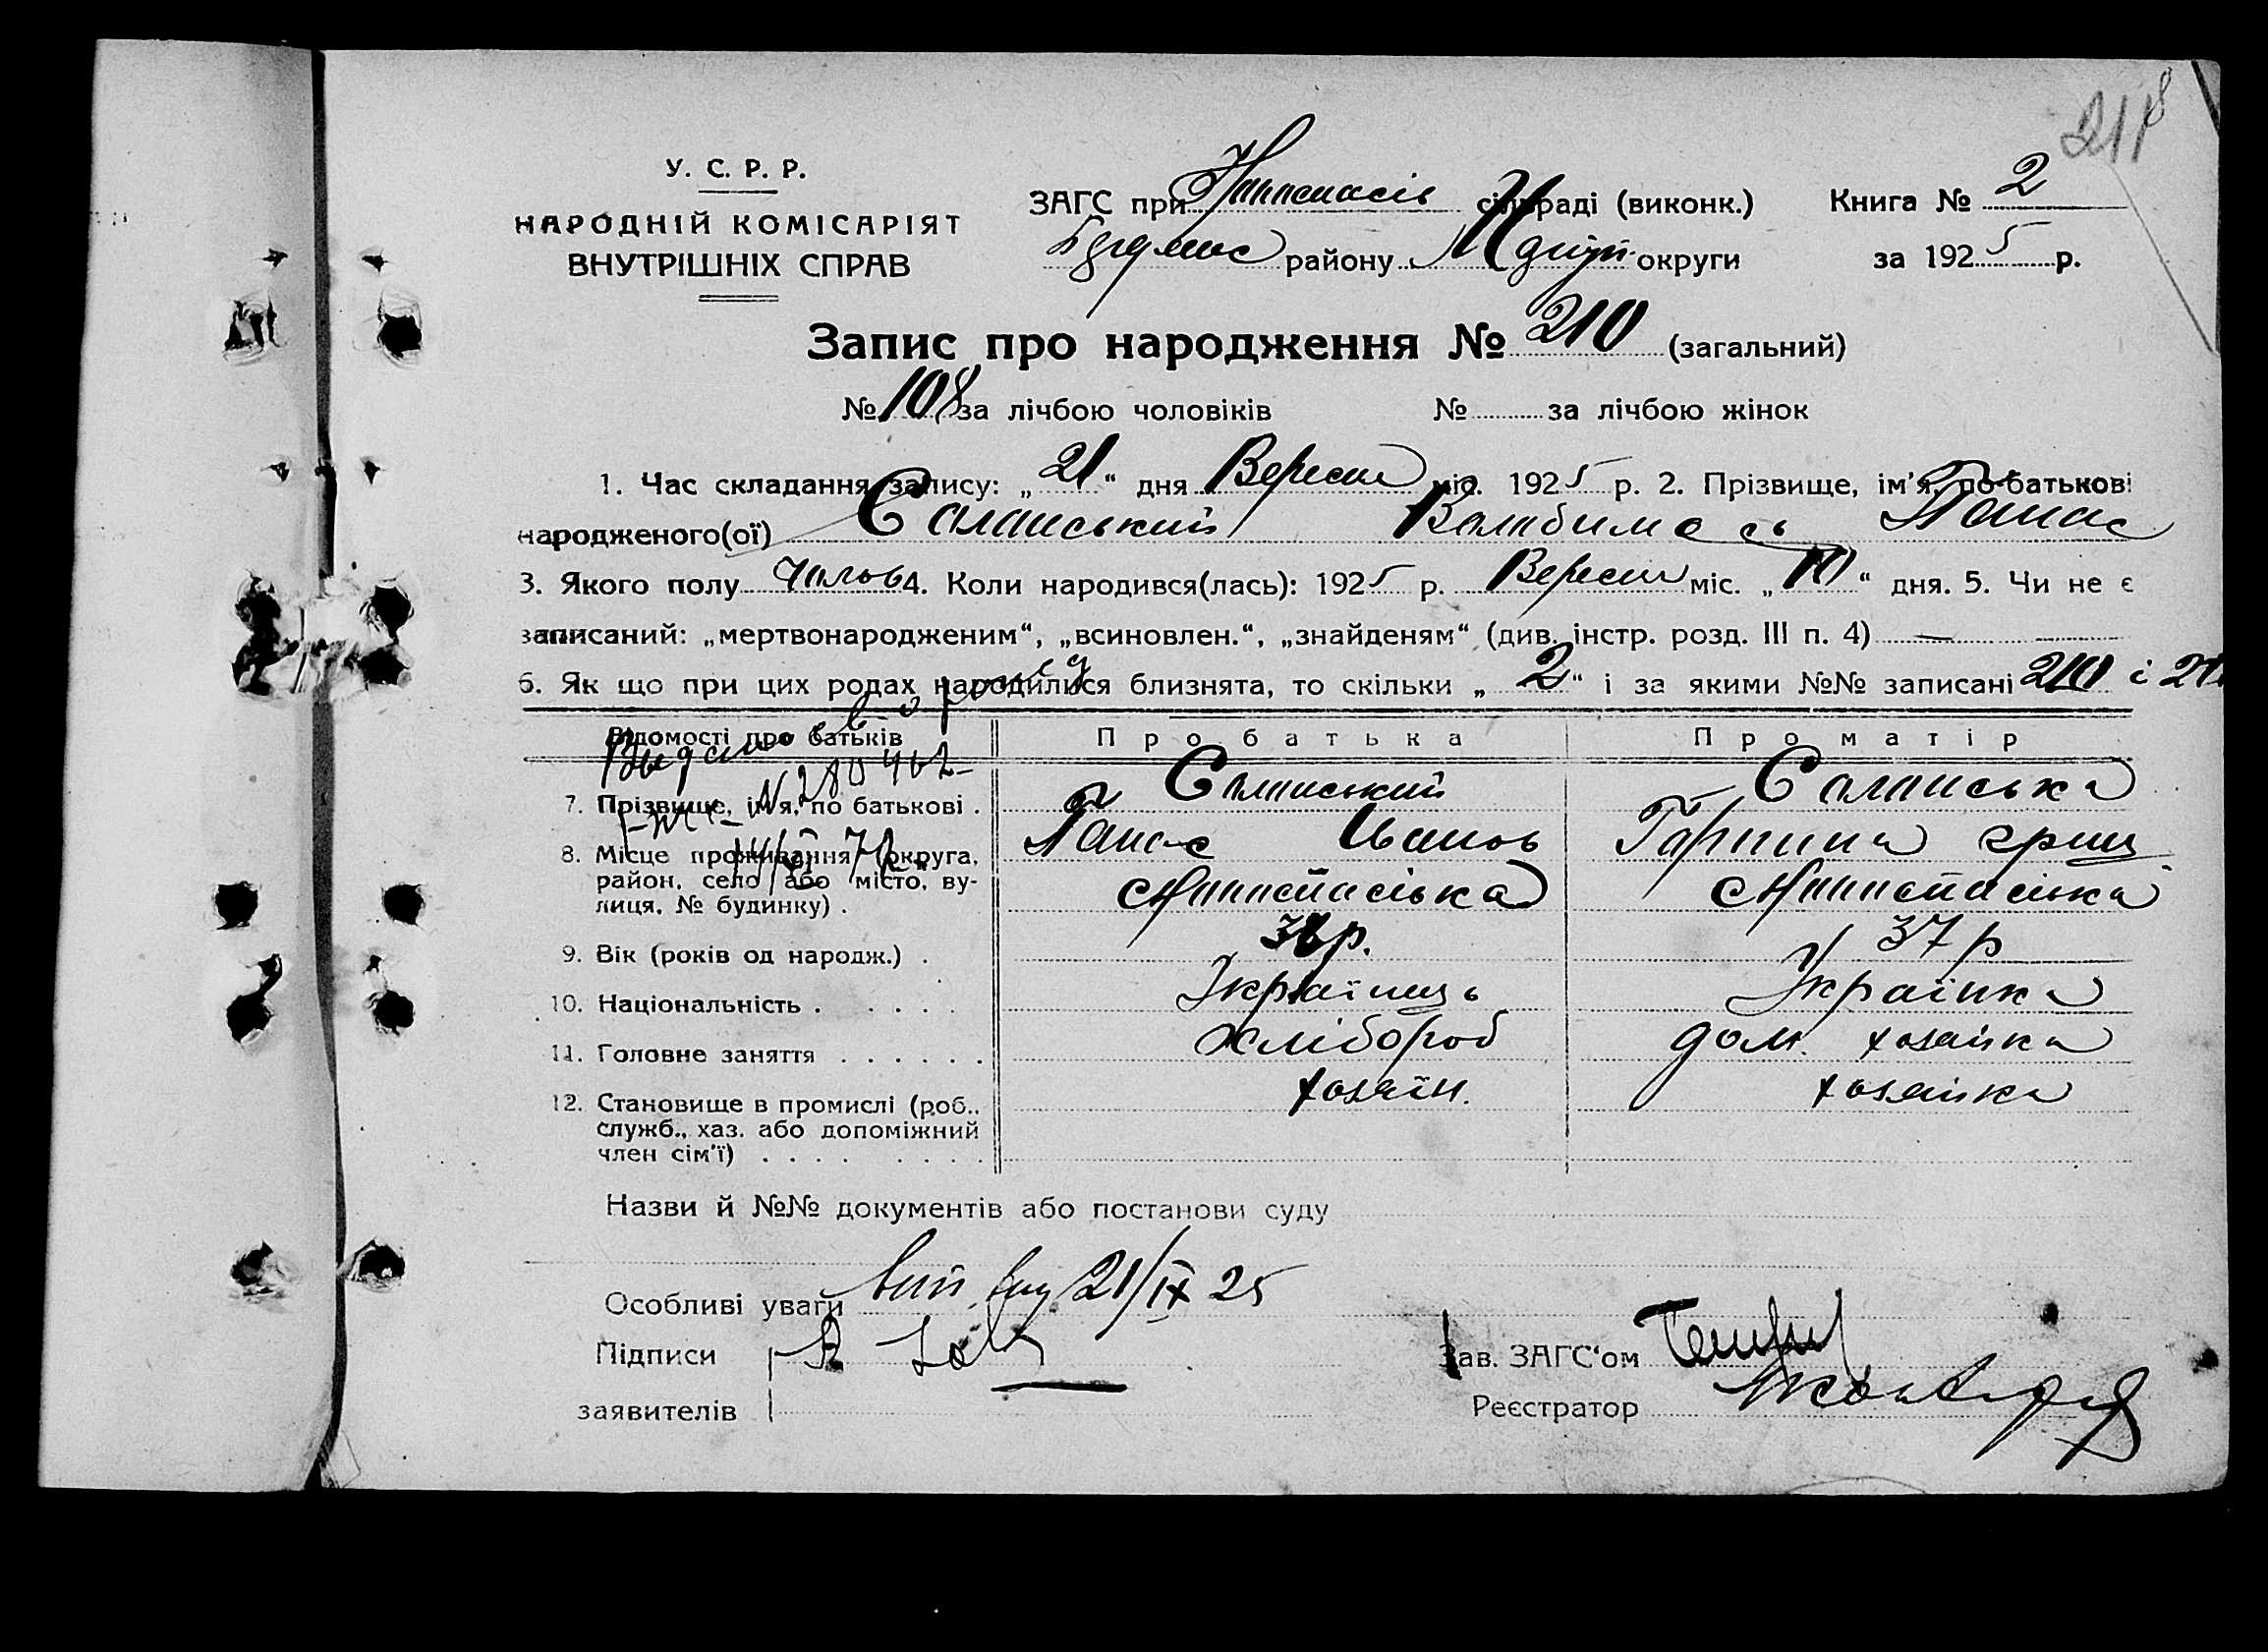 218
У. С. Р. Р.
НАРОДНІЙ КОМІСАРІЯТ
ВНУТРІШНІХ СПРАВ
ЗАГС при сільраді (виконк.) Книга № 2
району округи за 1925 р.
Запис про народження № 210 (загальний)
№ 108 за лічбою чоловіків № за лічбою жінок
1. Час складання запису: „21“ дня Вересня міс. 1925 р. 2. Прізвище, ім'я, по батькові
народженого(ої) Саланський Панас
3. Якого полу Чолов 4. Коли народився(лась): 1925 р. Вересня міс. „10“ дня. 5. Чи не є
записаний: „мертвонародженим“, „всиновлен.“, „знайденям“ (див. інстр. розд. III п. 4) —
6. Як що при цих родах народилися близнята, то скільки „2“ і за якими №№ записані 210 і
Відомості про батьків Про батька Про матір
7. Прізвище, ім'я, по батькові . Саланський Саланська
Панас Іванов Гарпина Гриц
8. Місце проживання (округа,
район, село або місто, ву-
лиця, № будинку) .
9. Вік (років од народж.) . 37 р
10. Національність . . . . . Українець Українка
11. Головне заняття . . . . . . Хлібороб дом. хозяйка
12. Становище в промислі (роб.,
служб., хаз. або допоміжний
член сім'ї) . . . . . . . . хозяін. хозяйка
Назви й №№ документів або постанови суду
Особливі уваги 21/IX 25
Підписи
заявителів
Зав. ЗАГС‘ом
Реєстратор